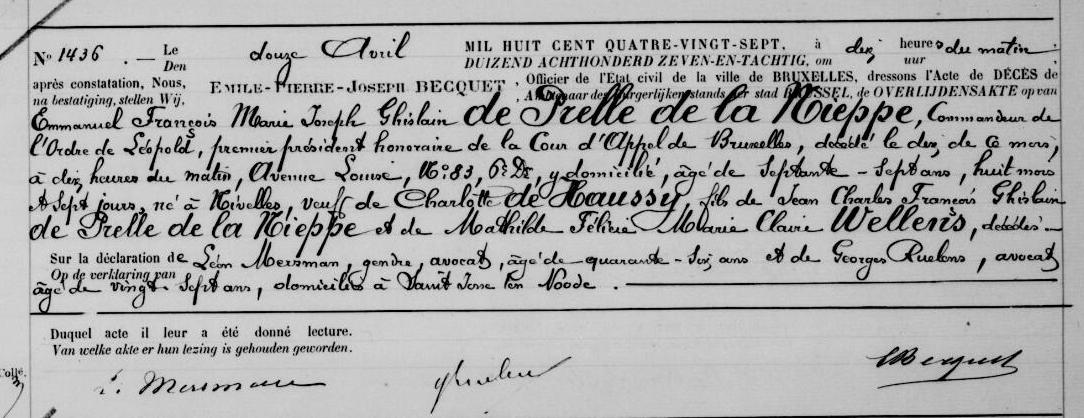 No 1436. — Le douze Avril MIL HUIT CENT QUATRE-VINGT-SEPT, à dix heures du matin;
Den DUIZEND ACHTHONDERD ZEVEN-EN-TACHTIG, om uur
après constatation, Nous, EMILE-PIERRE-JOSEPH BECQUET, Officier de l'État civil de la ville de BRUXELLES, dressons l'Acte de DÉCÈS de
na bestatiging, stellen Wij, Ambtenaar des Burgerlijken stands der stad BRUSSEL, de OVERLIJDENSAKTE op van
Emmanuel François Marie Joseph Ghislain de Prelle de la Nieppe, Commandeur de
l'Ordre de Léopold, premier président honoraire de la Cour d'Appel de Bruxelles, décédé le dix, de ce mois,
à dix heures du matin, Avenue Louise, No. 83, 6e Dn, y domicilié, âgé de Septante-Sept ans, huit mois
et Sept jours, né à Nivelles, veuf de Charlotte de Haussy, fils de Jean Charles François Ghislain
de Prelle de la Nieppe et de Mathilde Félicie Marie Claire Wellens, décédés. —
Sur la déclaration de Léon Mersman, gendre, avocat, âgé de quarante-six ans et de Georges Ruelens, avocat
Op de verklaring van
âgé de vingt-Sept ans, domiciliés à Saint Josse ten Noode. —
Duquel acte il leur a été donné lecture.
Van welke akte er hun lezing is gehouden geworden.
Collé.
L. Mersman GRuelens EBecquet